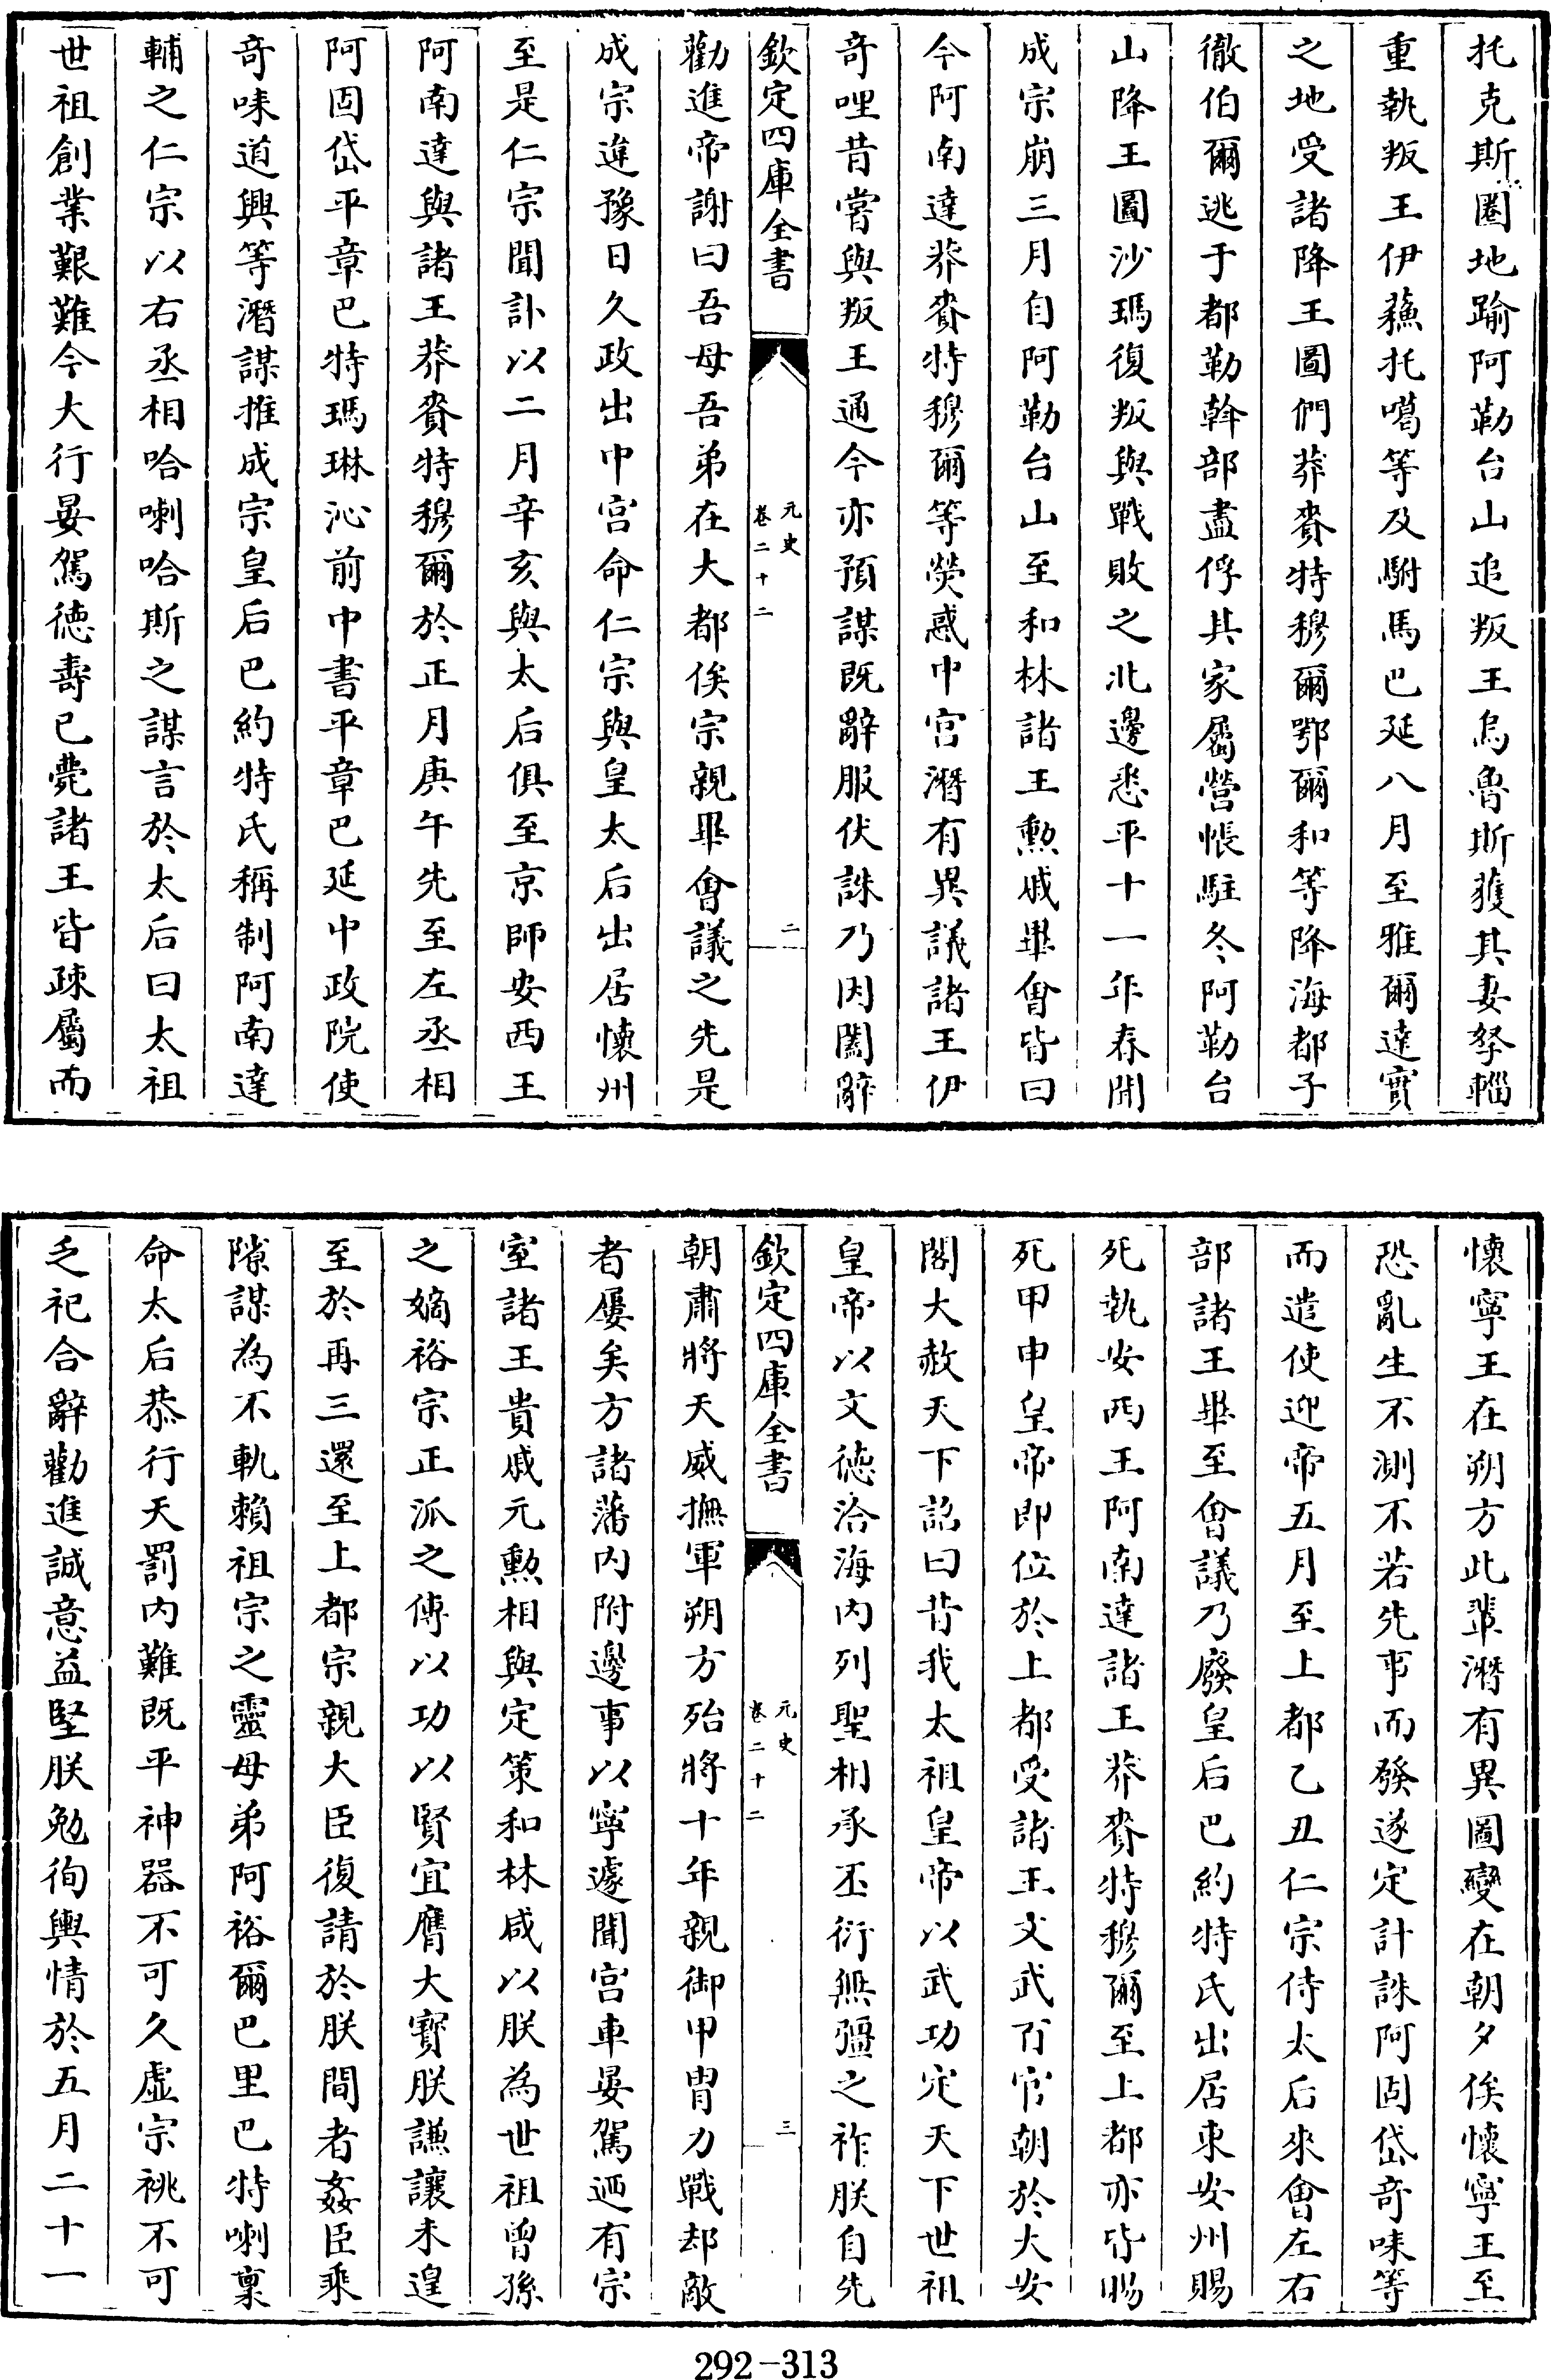 托克斯圈地踰阿勒台山追叛王烏魯斯獲其妻孥輜
重執叛王伊蘓托噶等及駙馬巴延八月至雅爾達實
之地受諸降王圖們莽賚特穆爾鄂爾和等降海都子
徹伯爾逃于都勒斡部盡俘其家屬營悵駐冬阿勒台
山降王圖沙瑪復叛與戰敗之北邊悉平十一年春聞
成宗崩三月自阿勒台山至和林諸王勲戚畢會皆曰
今阿南達莽賚特穆爾等熒惑中宫潛有異議諸王伊
竒哩昔嘗與叛王通今亦預謀既辭服伏誅乃因闔辭
欽定四庫全書
元史
卷二十二
二
勸進帝謝曰吾母吾弟在大都俟宗親畢㑹議之先是
成宗違豫日久政出中宫命仁宗與皇太后出居懷州
至是仁宗聞訃以二月辛亥與太后俱至京師安西王
阿南達與諸王莽賚特穆爾於正月庚午先至左丞相
阿固岱平章巴特瑪琳沁前中書平章巴延中政院使
竒味道興等潛謀推成宗皇后巴約特氏稱制阿南達
輔之仁宗以右丞相哈喇哈斯之謀言於太后曰太祖
世祖創業艱難今大行晏駕徳壽已薨諸王皆疎屬而
懷寧王在朔方此輩潛有異圖變在朝夕俟懷寧王至
恐亂生不測不若先事而發遂定計誅阿固岱竒味等
而遣使迎帝五月至上都乙丑仁宗侍太后來㑹左右
部諸王畢至㑹議乃廢皇后巴約特氏出居東安州賜
死執安西王阿南達諸王莽賚特穆爾至上都亦皆賜
死甲申皇帝即位於上都受諸王文武百官朝於大安
閣大赦天下詔曰昔我太祖皇帝以武功定天下世祖
皇帝以文徳洽海内列聖相承丕衍無彊之祚朕自先
欽定四庫全書
元史
卷二十二
三
朝肅將天威撫軍朔方殆將十年親御甲胄力戰却敵
者屢矣方諸藩内附邊事以寧遽聞宫車晏駕迺有宗
室諸王貴戚元勲相與定策和林咸以朕為世祖曽孫
之嫡裕宗正派之傳以功以賢宜膺大寳朕謙讓未遑
至於再三還至上都宗親大臣復請於朕間者姦臣乘
隙謀為不軌賴祖宗之靈母弟阿裕爾巴里巴特喇稟
命太后恭行天罰内難既平神器不可久虛宗祧不可
乏祀合辭勸進誠意益堅朕勉徇輿情於五月二十一
292-313